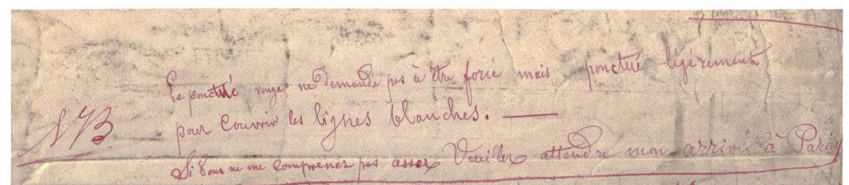 Le ponctué rouge ne demande pas à être forié mais ponctué légèrement
NB. pour couvrir les lignes blanches. —
Si vous ne me comprenez pas assez Veuillez attendre mon arrivée à Paris